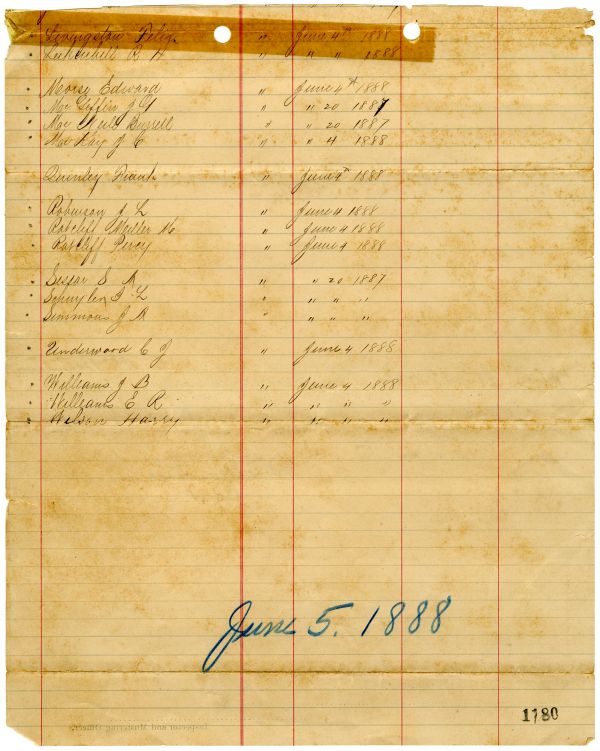 Livingston Felix " June 4th 1888
R H " " " 1888
Morse Edward " June 4th 1888
Mac J G " " 20 1887
Mac Neill Burrell " " 20 1887
Mac Kay J C " " 4 1888
Quinley Frank " June 4th 1888
Robinson J L " June 4 1888
Ratcliff Weiller " June 4 1888
Ratcliff Percy " June 4 1888
S A " " 20 1887
Schuyler F L " " " "
Simmons J R " " " "
Underwood C J " June 4 1888
Williams J B " June 4 1888
Williams E R " " " "
Wilson Harry " " " "
June 5. 1888
1180
Inspector and Mustering Officer.